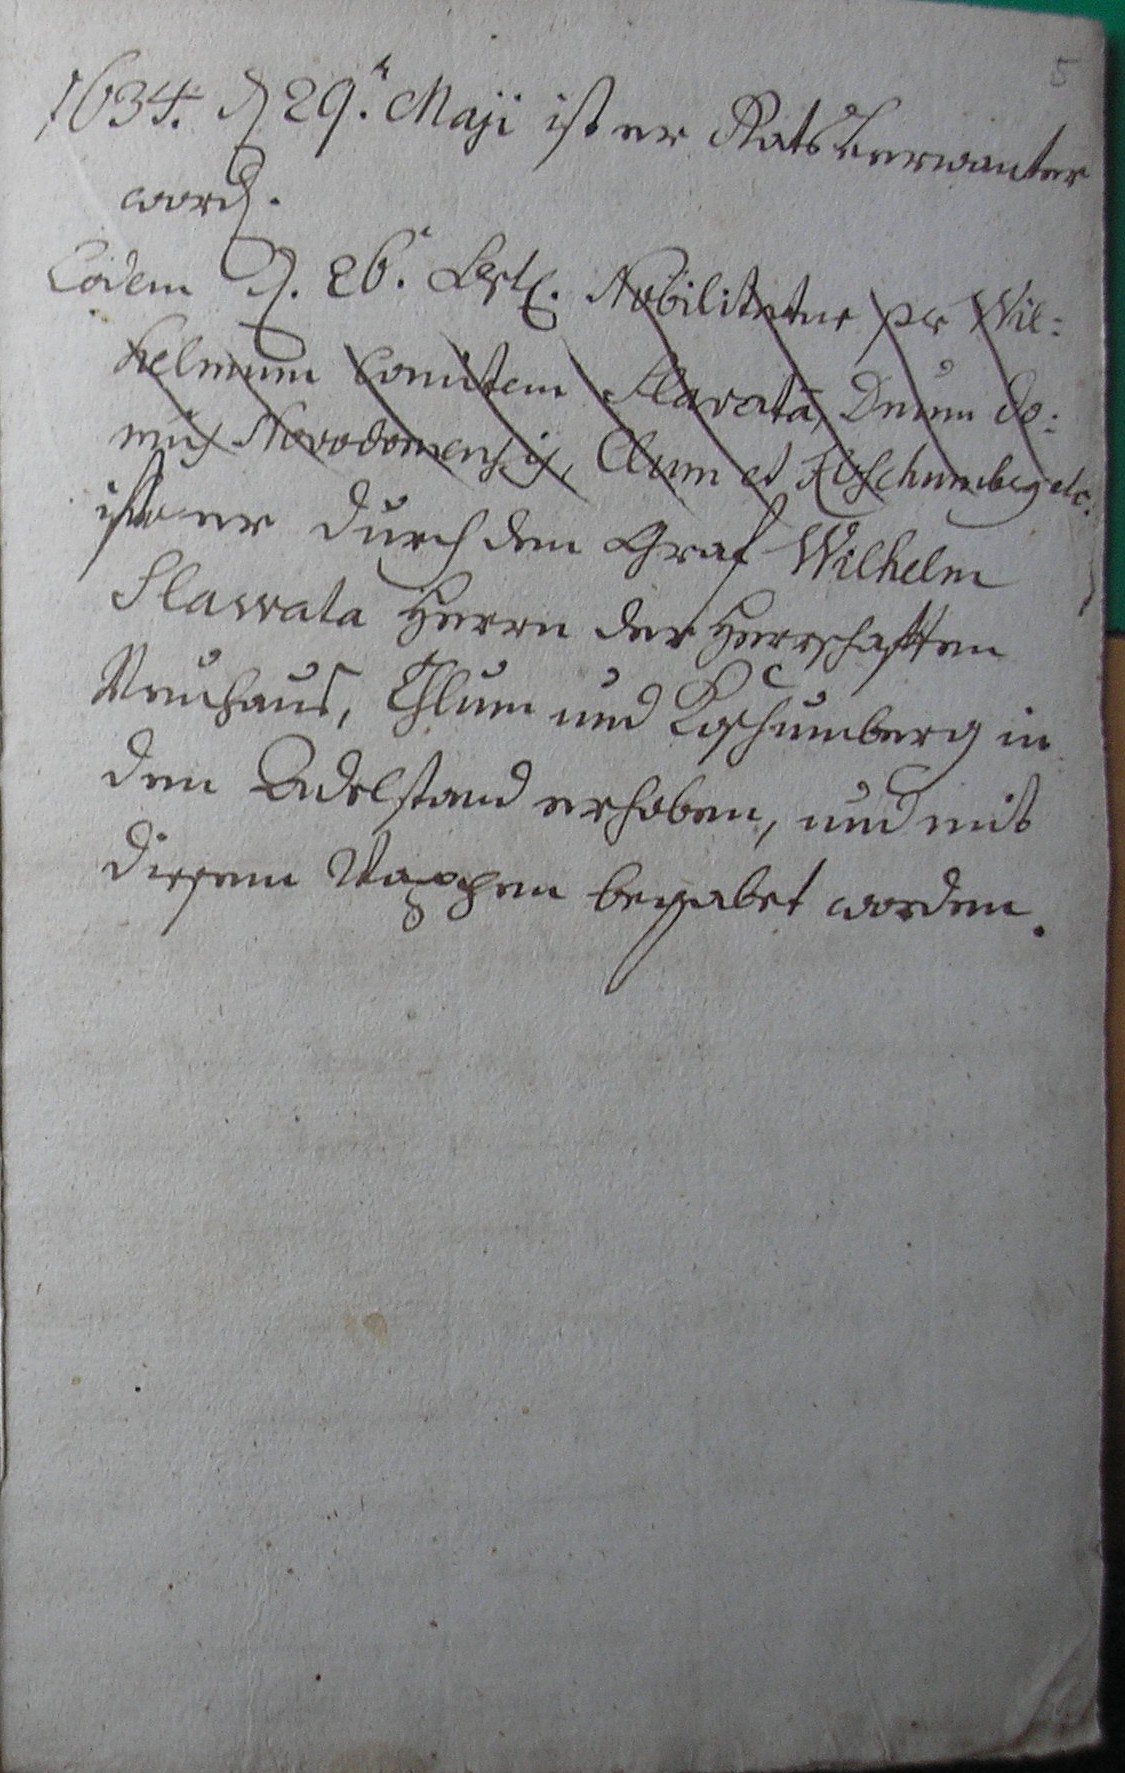 5
1634. d 29.t Maji ist er Rats Verwanter
word.
Eodem d. 26. Sept. Nobilitatur per Wil=
helmum Comitem Slavata, Dnum do=
mus Novodomensis, Clum et Koschumberg etc.
ist er durch den Graf Wilhelm
Slawata Herrn der Herrschafften
Neuhaus, Chlum und Koschumberg in
den Adelstand erhoben, und mit
diesem Wappen begabet worden.